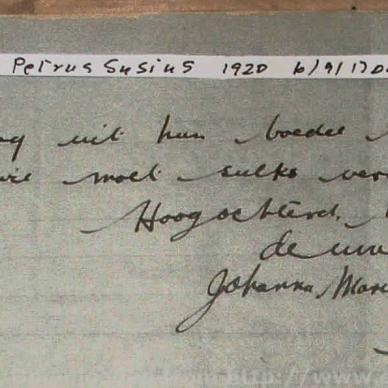 Petrus Susius 1920 6/9/17 D.
uit hun boedel
moet sulks ver
Hoogachtend,
de uwe
Johanna Mar
http://www.